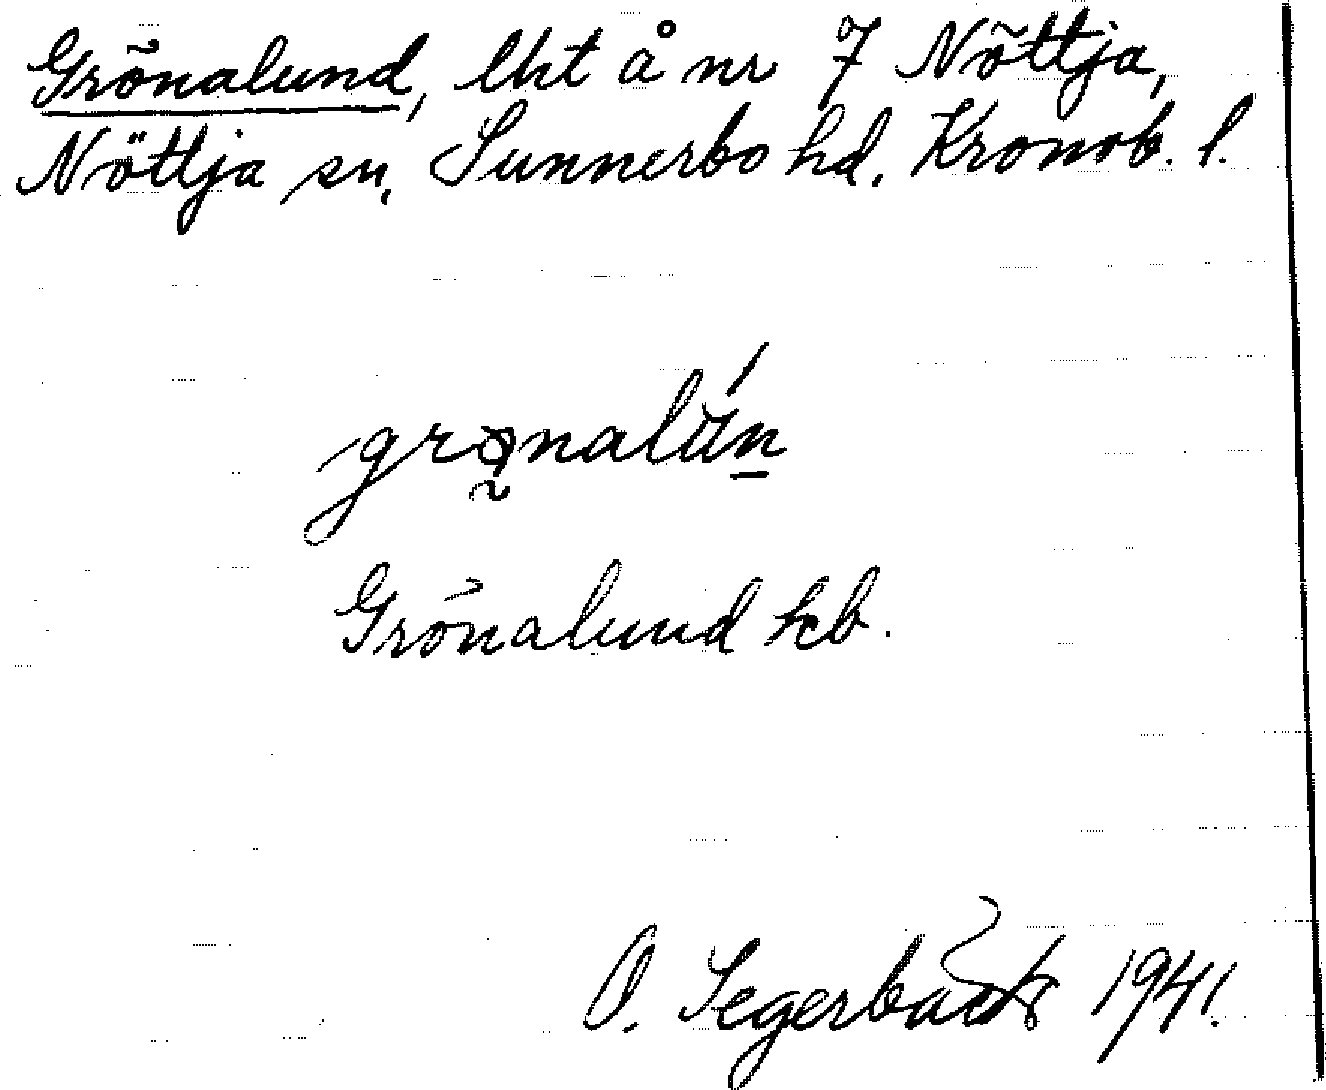 Grönalund, lht å nr 7 Nöttja,
Nöttja sn, Sunnerbo hd. Kronob. l.
Grönalund hcb.
O. Segerbäck 1941.